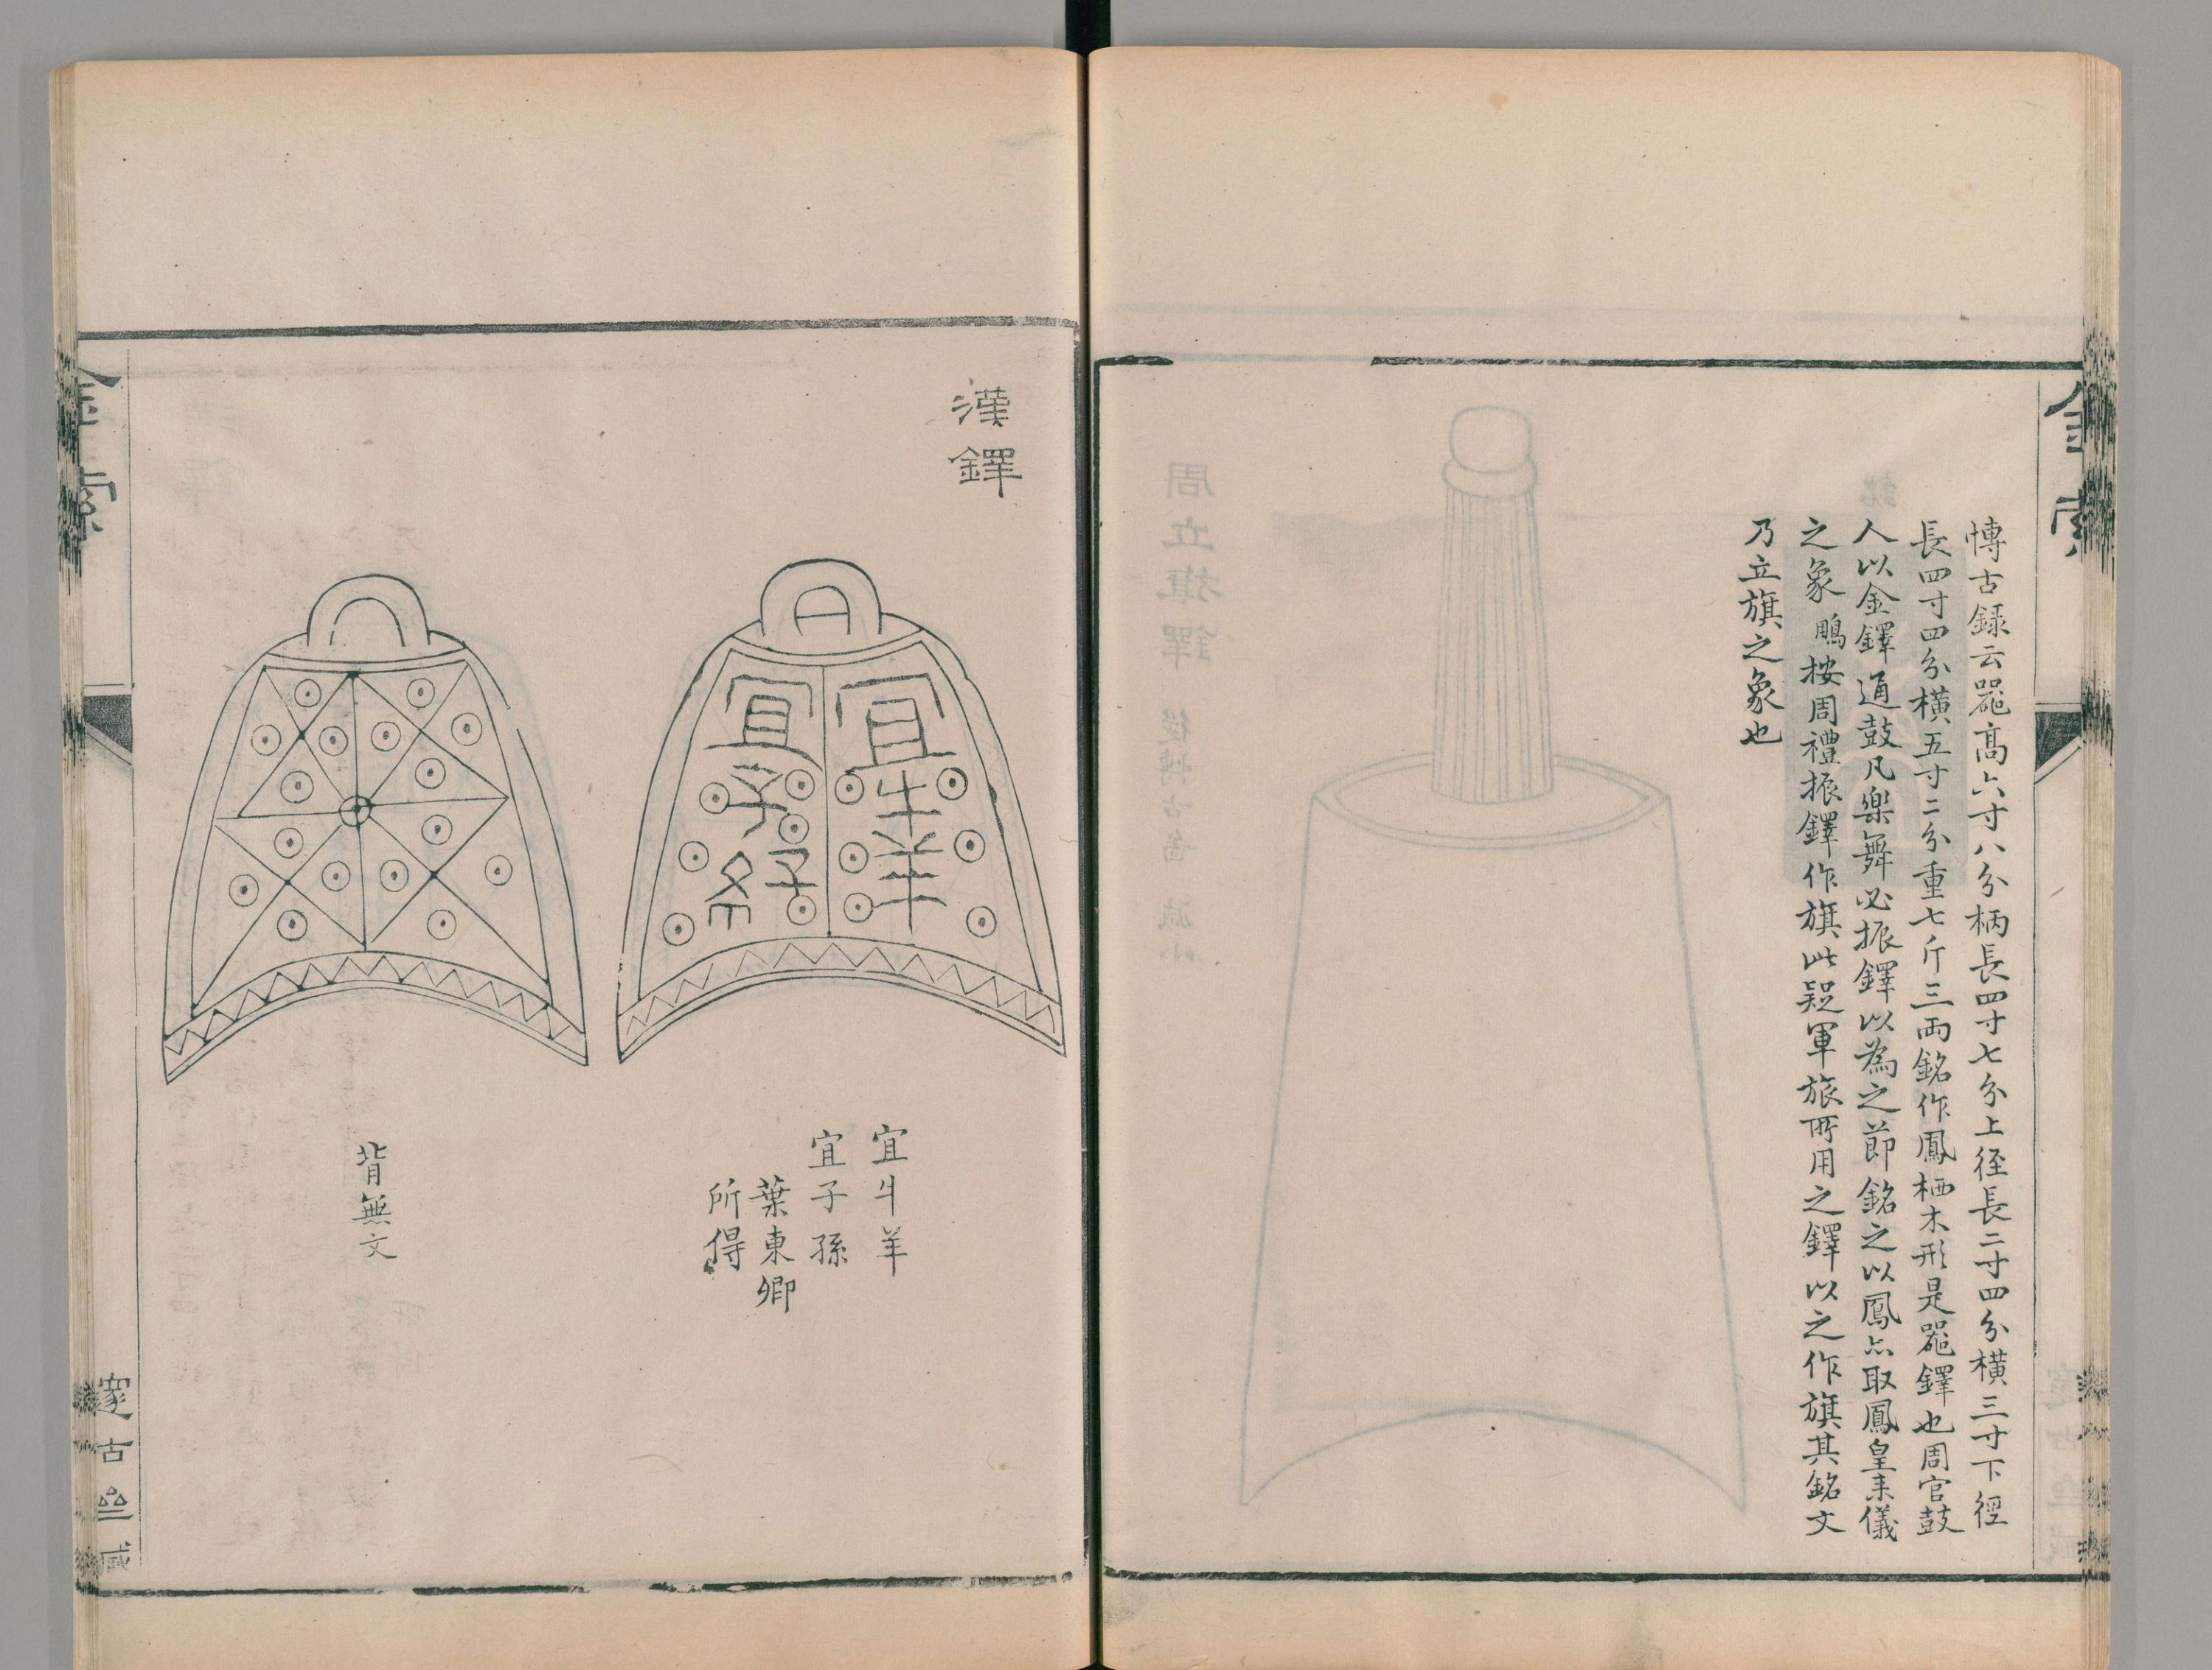 金索
博古録云器高六寸八分柄長四寸七分上径長二寸四分橫三寸下徑
長四寸四分橫五寸二分重七斤三両銘作鳳栖木形是器鐸也周官鼓
人以金鐸通鼓凡樂舞必振鐸以為之節銘之以鳳亦取鳳皇来儀
之象 鵬按周禮振鐸作旗此疑軍旅所用之鐸以之作旗其銘文
乃立旗之象也
漢鐸
宜牛羊
宜子孫
宜牛羊
宜子孫
葉東卿
所得
背無文
金索
邃古